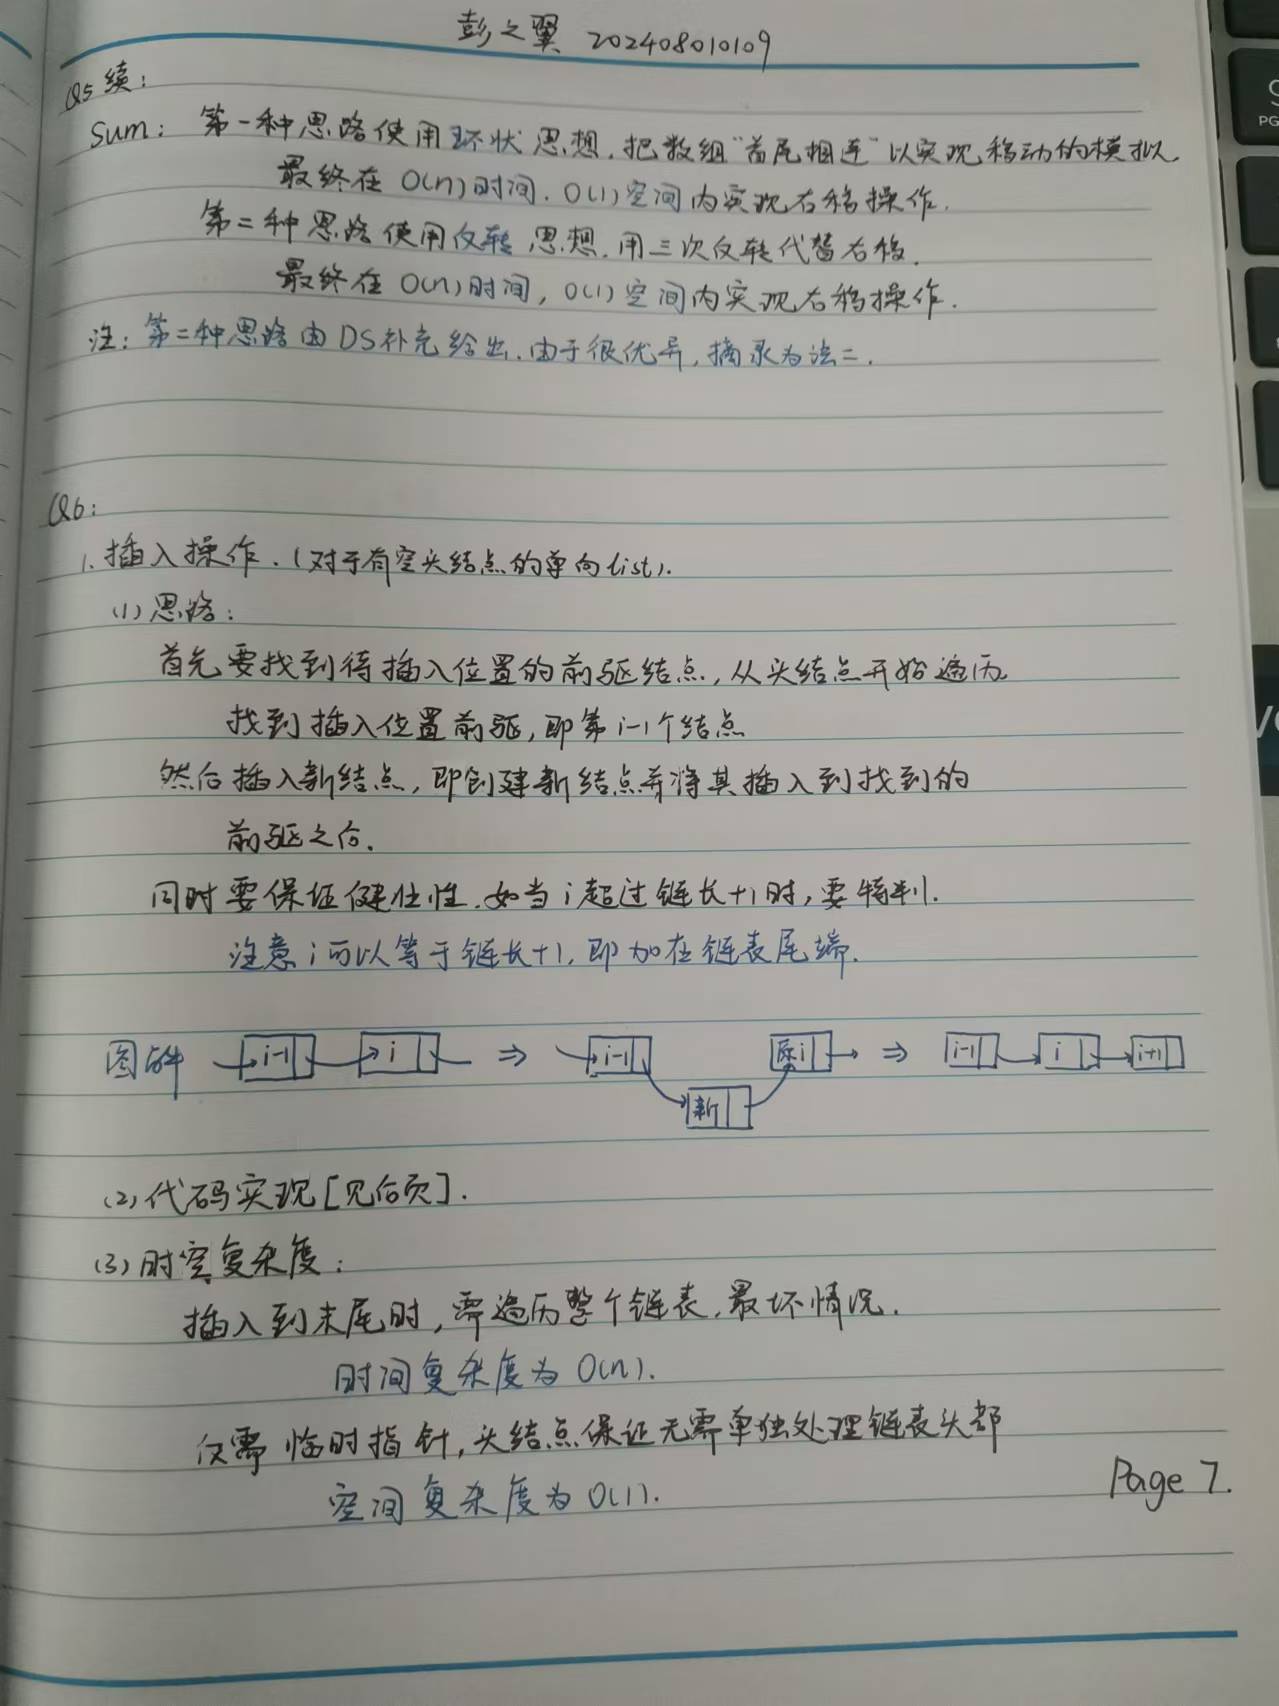 彭之翼 202408010109
Q5续:
Sum: 第一种思路使用环状思想,把数组"首尾相连"以实现移动的模拟.
最终在 O(n)时间, O(1)空间内实现右移操作.
第二种思路使用反转思想,用三次反转代替右移.
最终在 O(n)时间, O(1)空间内实现右移操作.
注: 第二种思路由DS补充给出.由于很优异,摘录为法二.
Q6:
1. 插入操作.(对于有空头结点的单向list).
(1) 思路:
首先要找到待插入位置的前驱结点,从头结点开始遍历
找到插入位置前驱,即第i-1个结点
然后插入新结点,即创建新结点并将其插入到找到的
前驱之后.
同时要保证健壮性.如当i超过链长+1时,要特判.
注意i可以等于链长+1,即加在链表尾端.
图解 i-1 i ⇒ i-1 新 原i ⇒ i-1 i i+1
(2) 代码实现[见后页].
(3) 时空复杂度:
插入到末尾时,需遍历整个链表,最坏情况.
时间复杂度为 O(n).
仅需临时指针,头结点保证无需单独处理链表头部
空间复杂度为 O(1).
Page 7.